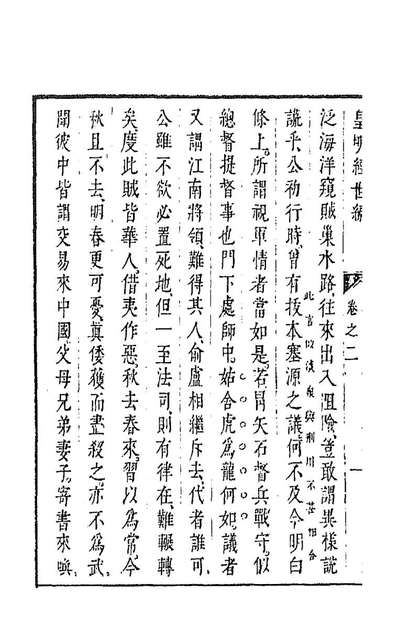 皇明經世編
卷之二
一
泛海洋窺賊巢水路往來出入阻險豈敢謂異樣說
謊乎公初行時曾有拔本塞源之議何不及今明白
條上所謂視軍情者當如是若冒矢石督兵戰守似
總督提督事也門下處師中姑舍虎為龍何如議者
又謂江南將領難得其人俞盧相繼斥去代者誰可
公雖不欲必置死地但一至法司則有律在難輾轉
矣度此賊皆華人借夷作惡秋去春來習以為常今
秋且不去明春更可憂真倭獲而盡殺之亦不為武
聞彼中皆謂交易來中國父母兄弟妻子寄書來喚